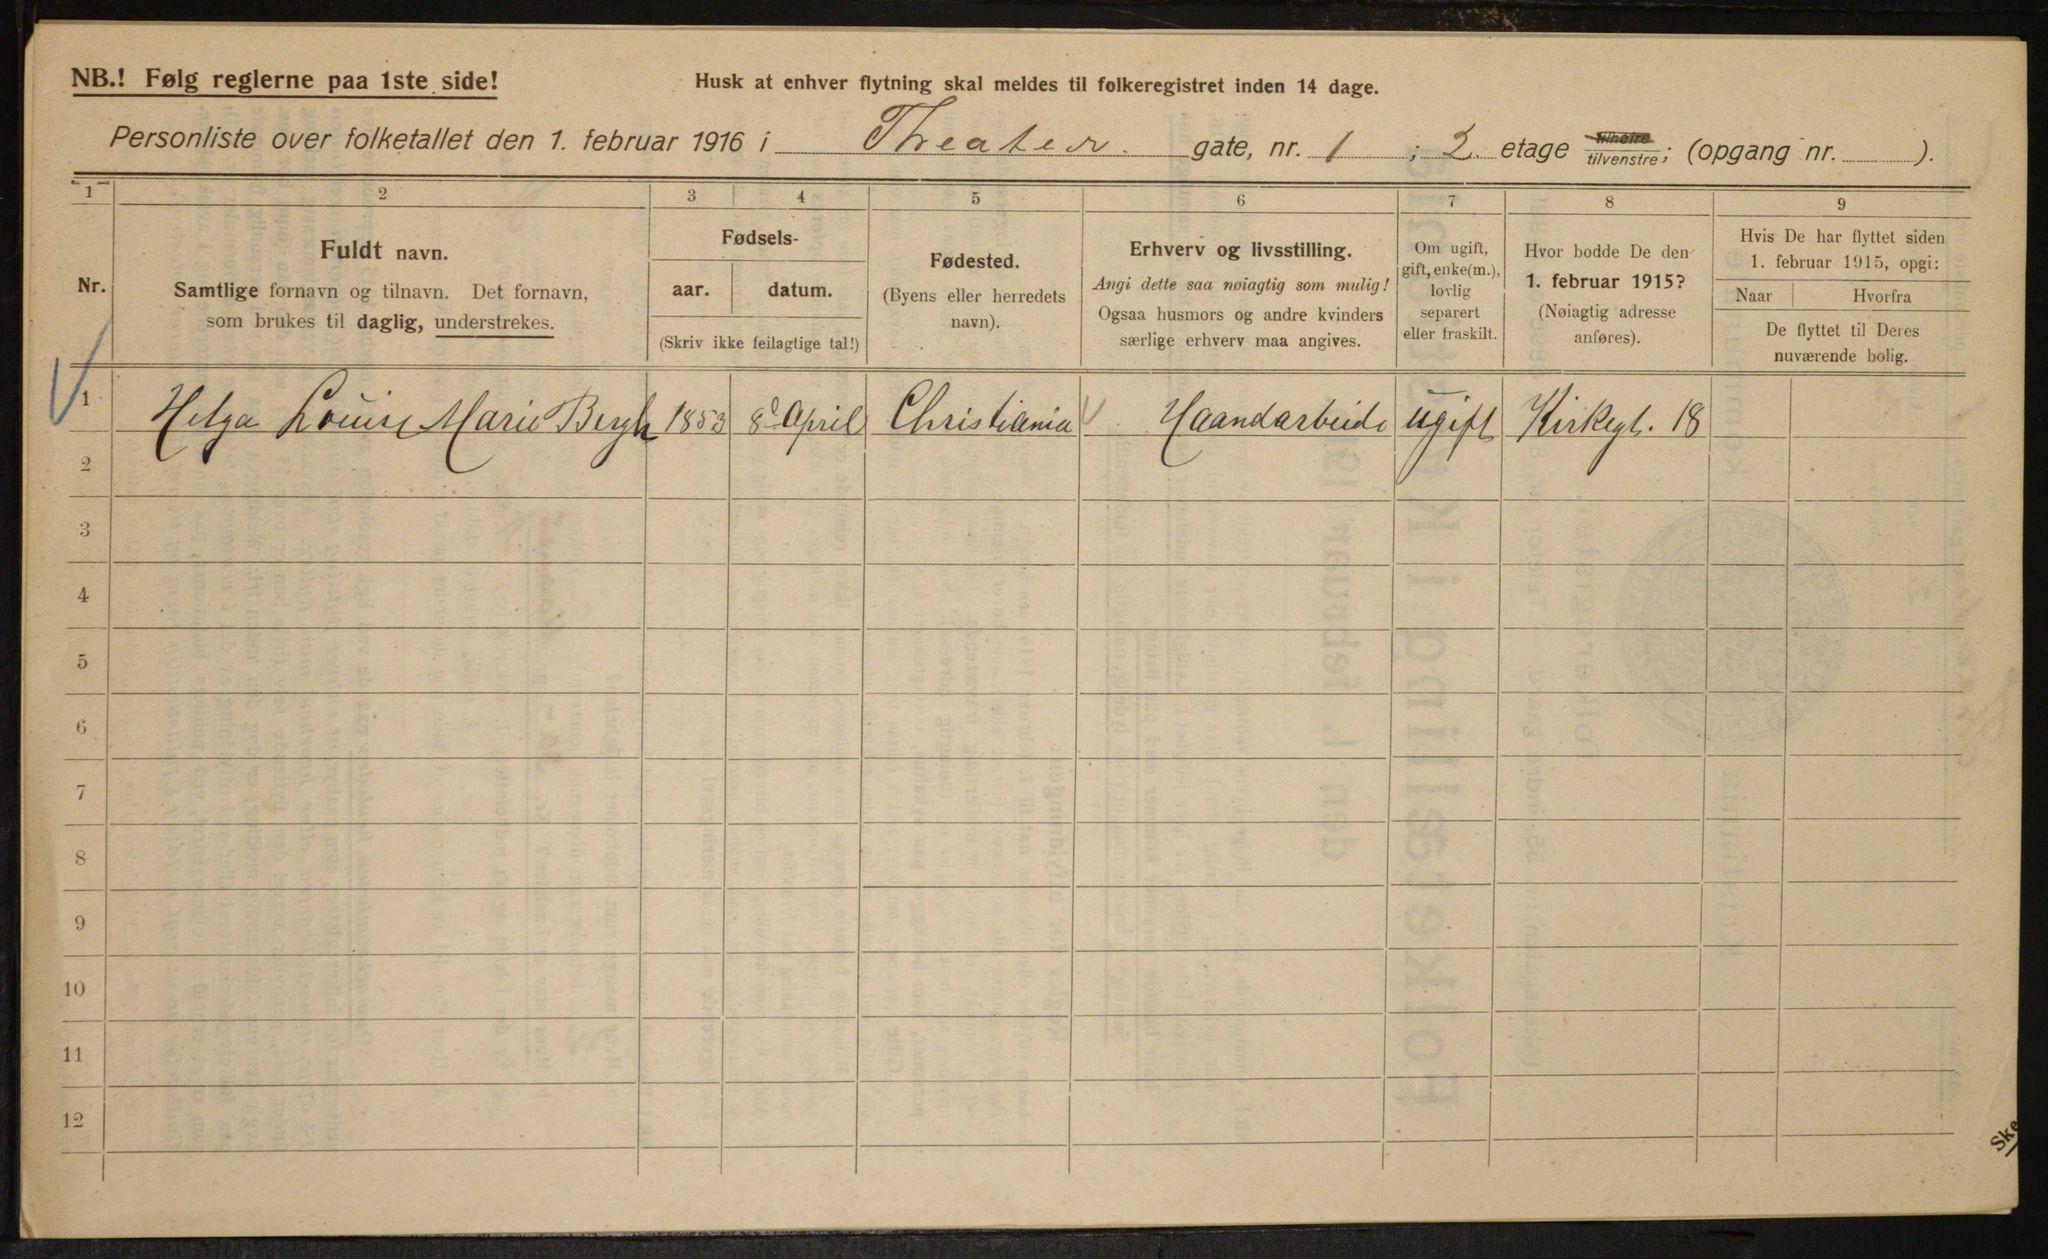 NB.! Følg reglerne paa 1ste side!
Husk at enhver flytning skal meldes til folkeregistret inden 14 dage.
Personliste over folketallet den 1. februar 1916 i Theater gate, nr. 1 ; 2. etage tilhøire/tilvenstre; (opgang nr. ).
1 2 3 4 5 6 7 8 9
Nr.
Fuldt navn.
Samtlige fornavn og tilnavn. Det fornavn,
som brukes til daglig, understrekes.
Fødsels-
aar. datum.
(Skriv ikke feilagtige tal!)
Fødested.
(Byens eller herredets
navn).
Erhverv og livsstilling.
Angi dette saa nøiagtig som mulig!
Ogsaa husmors og andre kvinders
særlige erhverv maa angives.
Om ugift,
gift, enke(m.),
lovlig
separert
eller fraskilt.
Hvor bodde De den
1. februar 1915?
(Nøiagtig adresse
anføres).
Hvis De har flyttet siden
1. februar 1915, opgi:
Naar Hvorfra
De flyttet til Deres
nuværende bolig.
1 Helga Louise Marie Bergh 1853 8d April Christiania Haandarbeide ugift Kirkegt. 18
2
3
4
5
6
7
8
9
10
11
12
Ske